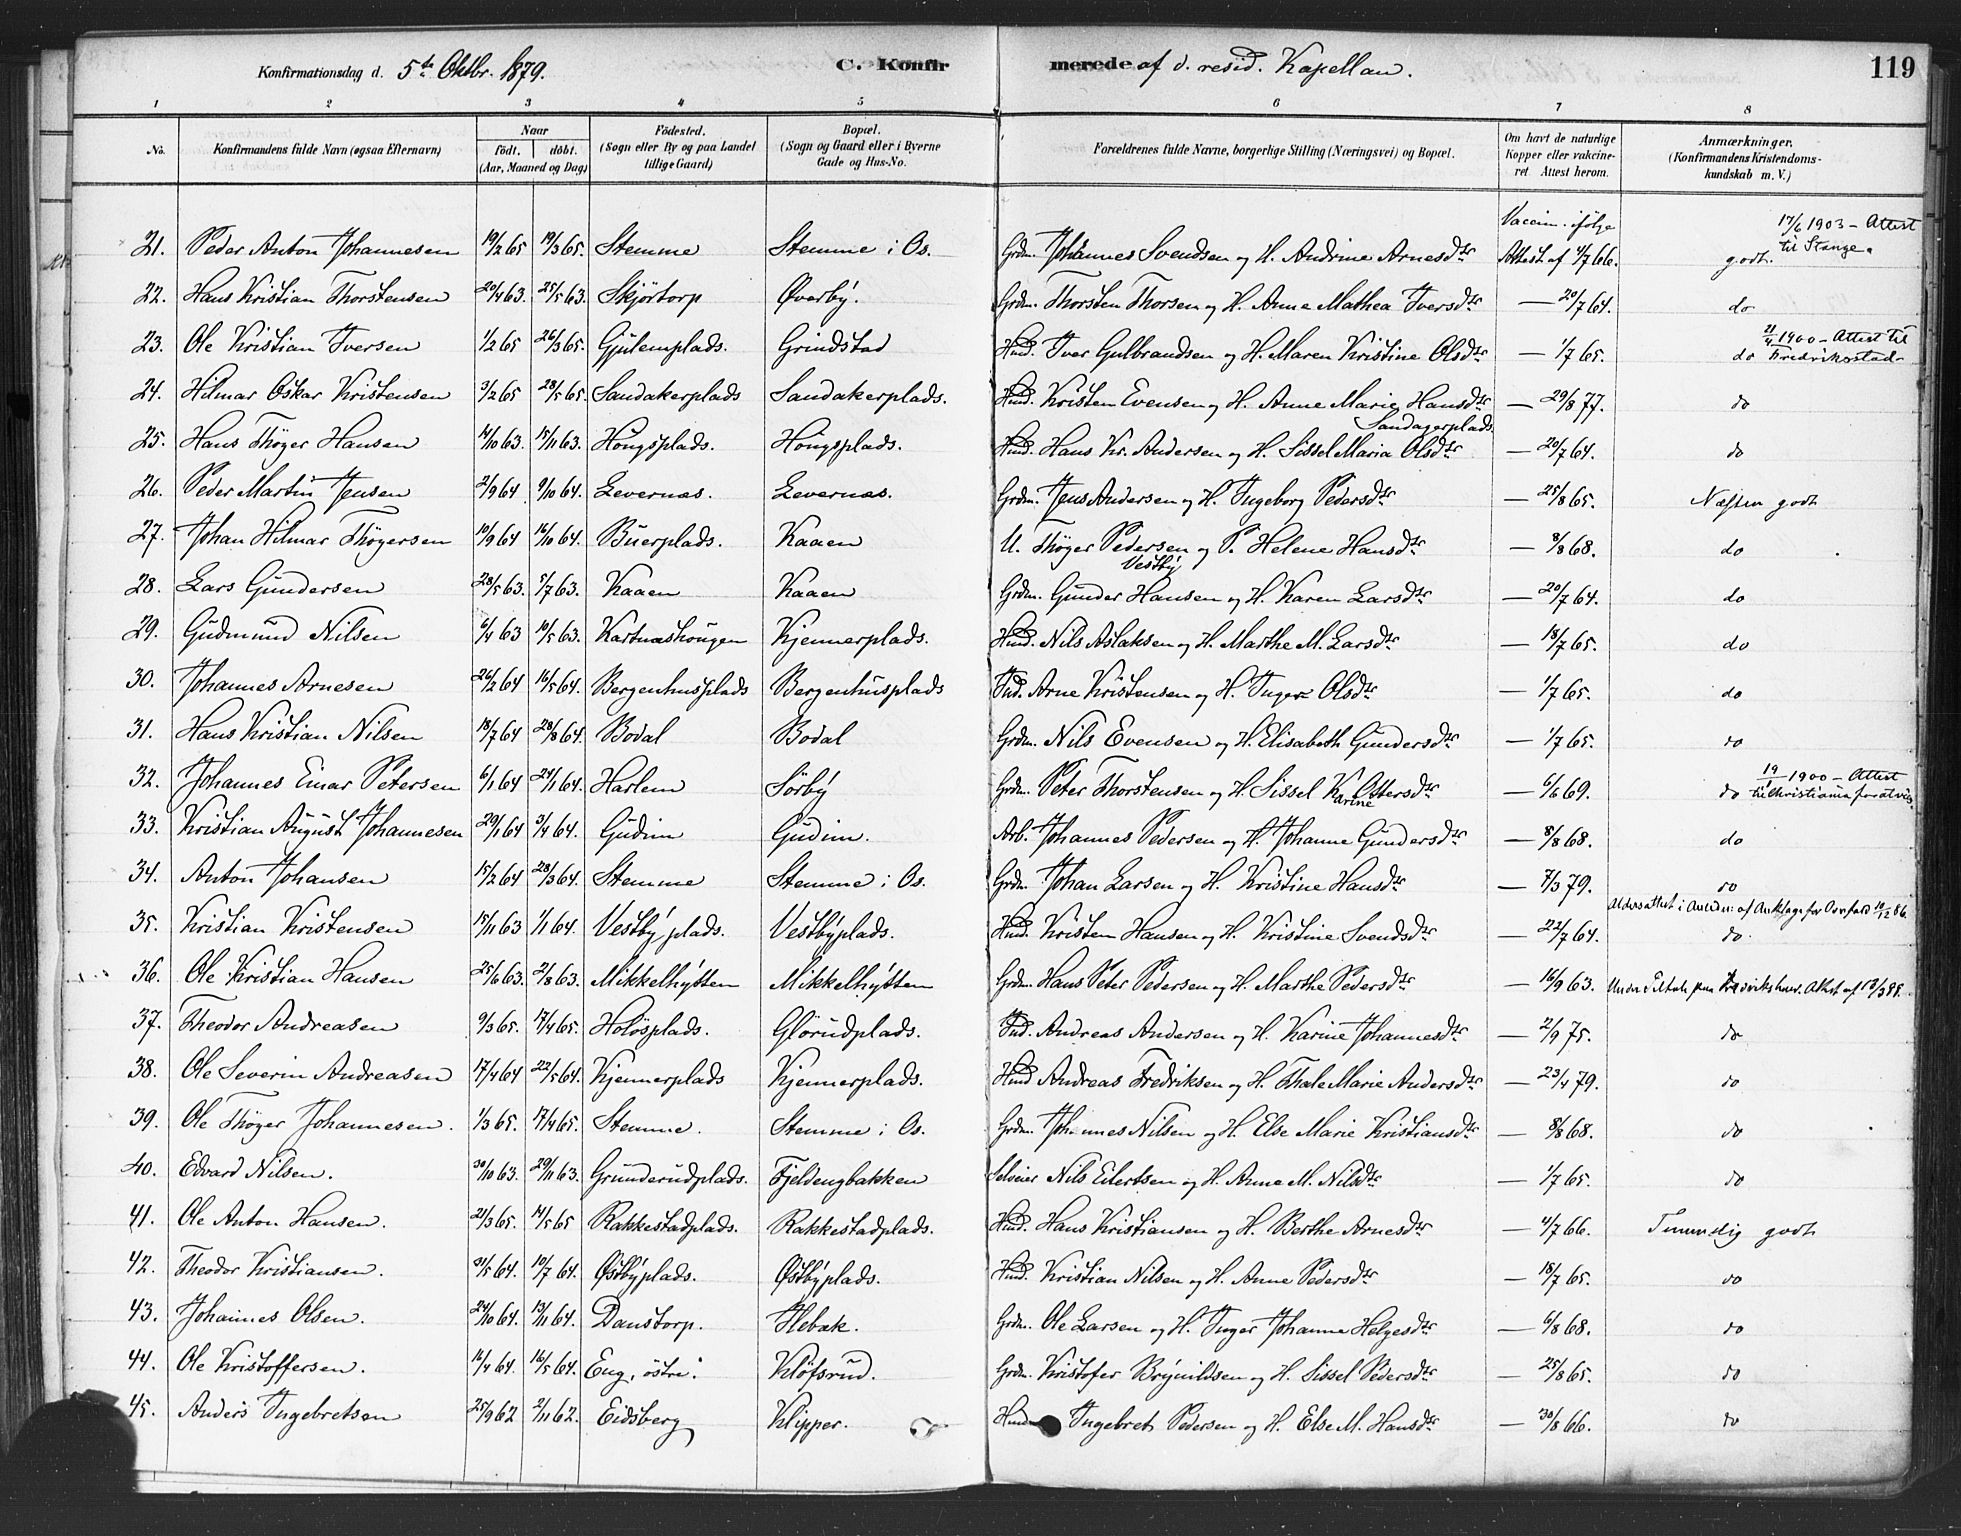 Konfirmationsdag d. 5te Oktbr. 1879. C. Konfirmerede af d. resid. Kapellan. 119
1 2 3 4 5 6 7 8
No. Konfirmandens fulde Navn (ogsaa Efternavn) Naar födt. döbt. (Aar, Maaned og Dag) Födested. (Sogn eller By og paa Landet tillige Gaard) Bopæl. (Sogn og Gaard eller i Byerne Gade og Hus-No. Forældrenes fulde Navne, borgerlige Stilling (Næringsvei) og Bopæl. Om havt de naturlige Kopper eller vakcineret Attest herom. Anmærkninger. (Konfirmandens Kristendomskundskab m. V.)
21. Peder Anton Johannesen 19/2 65 19/3 65. Stemme Stemme i Os. Grdm. Johannes Svendsen og H. Andrine Arnesdtr Vaccin. ifölge Attest af 4/7 66. godt. 17/6 1903 – Attest til Stange.
22. Hans Kristian Thorstensen 20/4 63. 25/5 63. Skjörtorp Øverby. Grdm. Thorsten Thorsen og H. Anne Mathea Iversdtr — 20/7 64. do
23. Ole Kristian Iversen 1/2 65 26/3 65. Gjulemplads. Grindstad Husd. Iver Gulbrandsen og H. Maren Kristine Olsdtr — 1/7 65. do 21/4 1900 – Attest til Fredriksstad
24. Hilmar Oskar Kristensen 3/2 65 28/5 65. Sandakerplads Sandakerplads. Husd. Kristen Evensen og H. Anne Marie Hansdtr Sandagerplads. — 29/8 77. do
25. Hans Thöger Hansen 14/10 63. 15/11 63. Hougsplads. Hougsplads. Husd. Hans Kr. Andersen og H. Sissel Maria Olsdtr — 20/7 64. do
26. Peder Martin Jensen 2/9 64. 9/10 64. Levernæs. Levernæs. Grdm. Jens Andersen og H. Ingeborg Pedersdtr — 25/8 65. Næsten godt
27. Johan Hilmar Thögersen 10/9 64 16/10 64. Buerplads. Kaaen U. Thöger Pedersen Vestby og P. Helene Hansdtr — 8/8 68. do
28. Lars Gundersen 28/5 63. 5/7 63. Kaaen Kaaen Grdm. Gunder Hansen og H. Karen Larsdtr — 20/7 64. do
29. Gudmund Nilsen 6/4 63 10/5 63. Kartnæshougen Kjennerplads. Husd. Nils Aslaksen og H. Marthe M. Larsdtr — 18/7 65. do
30. Johannes Arnesen 26/2 64 16/5 64. Bergenhusplads Bergenhusplads Ind. Arne Kristensen og H. Inger Olsdtr — 1/7 65. do
31. Hans Kristian Nilsen 18/7 64 28/8 64. Bodal Bodal Grdm. Nils Evensen og H. Elisabeth Gundersdtr — 1/7 65. do
32. Johannes Einar Petersen 6/1 64 24/1 64. Harlem Sörby Grdm. Peter Thorstensen og H. Sissel Karine Ottersdtr — 6/6 69. do 19/1 1900 – Attest til Christiania
33. Kristian August Johannesen 29/1 64 3/4 64. Gudim Gudim. Arb. Johannes Pedersen og H. Johanne Gundersdtr — 8/8 68. do
34. Anton Johansen 15/2 64 28/3 64. Stemme Stemme i Os. Grdm. Johan Larsen og H. Kristine Hansdtr — 7/3 79. do
35. Kristian Kristensen 15/11 63 1/1 64. Vestbyplads. Vestbyplads. Husd. Kristen Hansen og H. Kristine Svendsdtr — 22/7 64. Aldersattest i Anledn: af Anklage for Overfald 10/12 86. do.
36. Ole Kristian Hansen 25/6 63. 2/8 63. Mikkelhytten Mikkelhytten Grdm. Hans Peter Pedersen og H. Marthe Pedersdtr — 16/9 63. Under Tiltale paa Fredrikshver. Attest af 13/3 88.
37. Theodor Andreasen 9/3 65. 17/4 65. Holösplads. Glörudplads. Ind. Andreas Andersen og H. Karine Johannesdtr — 2/9 75. do
38. Ole Severin Andreasen 17/4 64 22/5 64. Kjennerplads Kjennerplads. Husd Andreas Fredriksen og H. Thale Marie Andersdtr — 23/4 79. do
39. Ole Thöger Johannesen. 1/3 65. 17/4 65. Stemme. Stemme i Os. Grdm. Johannes Nilsen og H. Else Marie Kristiansdtr — 8/8 68. do
40. Edvard Nilsen. 30/10 63. 29/11 63. Grunderudplads. Fjeldengbakken Selveier Nils Eilertsen og H. Anne M. Nilsdtr — 1/7 65. do
41. Ole Anton Hansen. 21/3 65. 14/5 65 Rakkestadplads. Rakkestadplads. Husd. Hans Kristiansen og H. Berthe Arnesdtr — 4/7 66. Temmelig godt
42. Theodor Kristiansen. 31/5 64. 10/7 64. Østbyplads. Østbyplads. Husd. Kristian Nilsen og H. Anne Pedersdtr — 18/7 65. do
43. Johannes Olsen. 24/10 64. 13/11 64. Danstorp. Hebæk. Grdm. Ole Larsen og H. Inger Johanne Helgesdtr — 6/8 68. do
44. Ole Kristoffersen. 16/4 64. 16/5 64. Eng, östre. Klöfsrud. Grdm. Kristofer Brynildsen og H. Sissel Pedersdtr — 25/8 65. do
45. Anders Ingebretsen 25/9 62 2/11 62. Eidsberg Klipper. Ingebret Pedersen og H. Else M. Hansdtr — 30/8 66. do